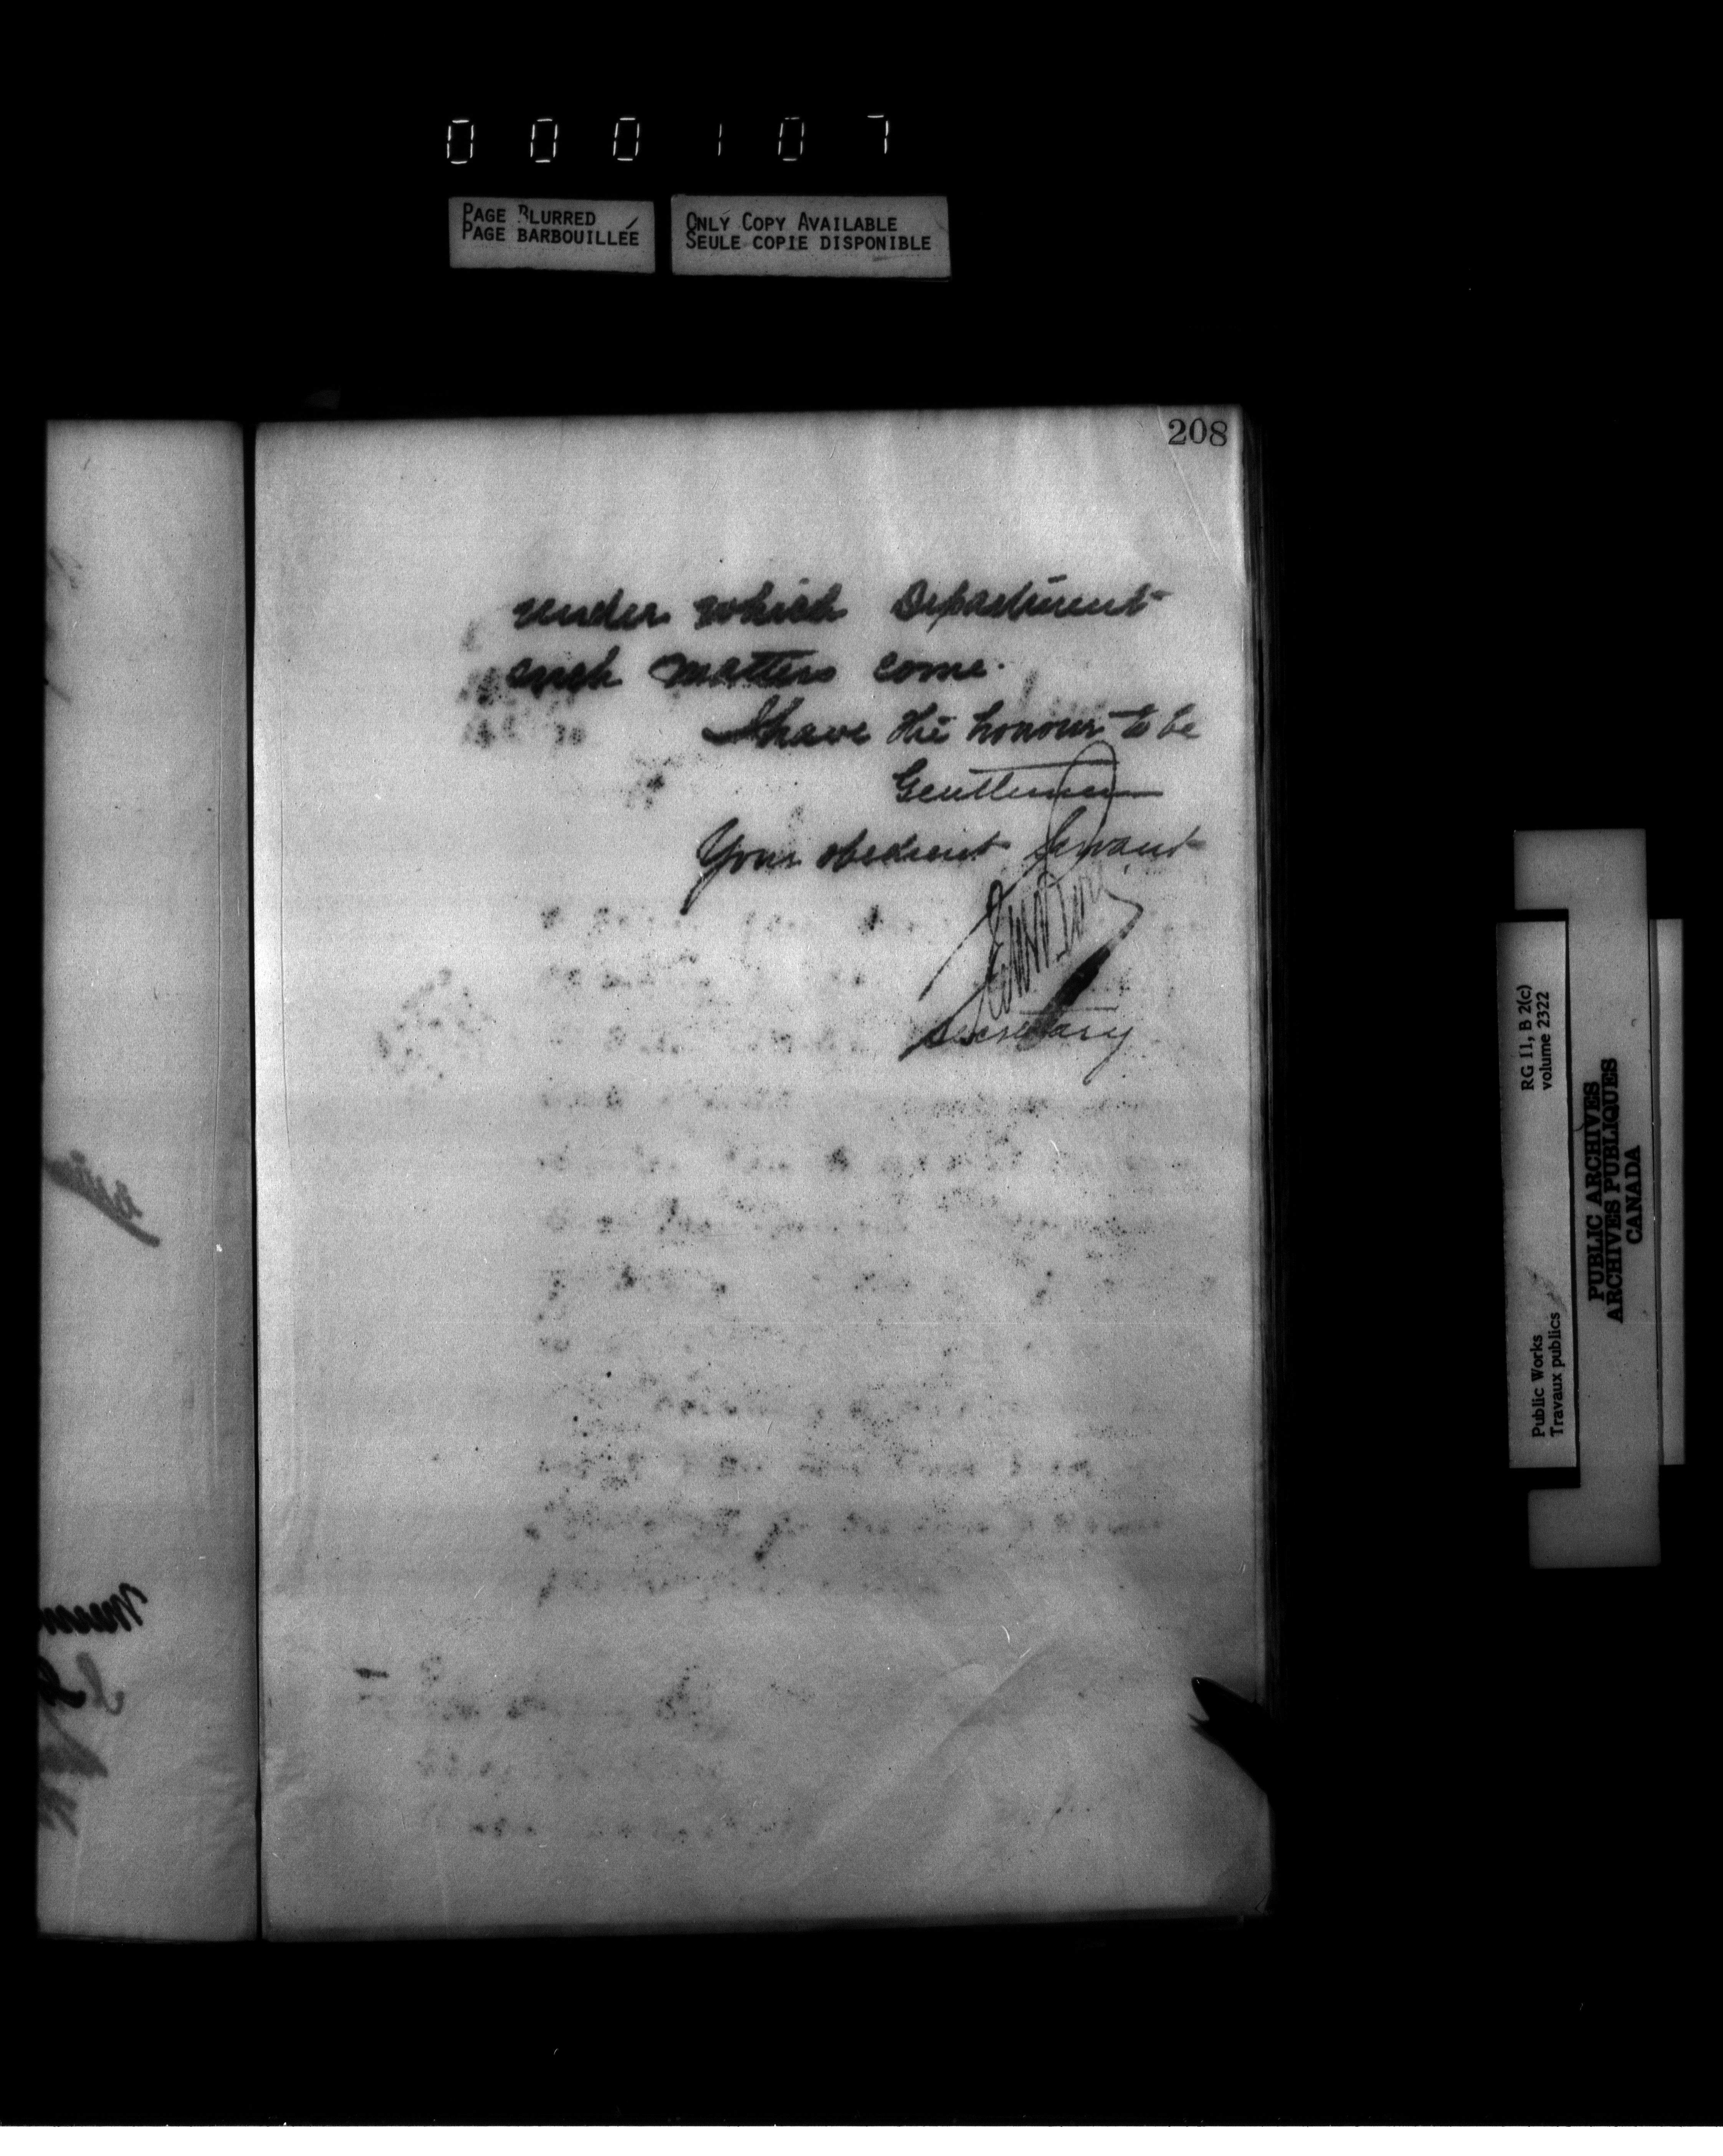 000107
PAGE BLURRED
PAGE BARBOUILLÉE
ONLY COPY AVAILABLE
SEULE COPIE DISPONIBLE
208
under which Department
such matters come.
I have the honour to be
Gentlemen
Your obedient Servant
Secretary
RG 11, B 2(c)
volume 2322
Public Works
Travaux publics
PUBLIC ARCHIVES
ARCHIVES PUBLIQUES
CANADA